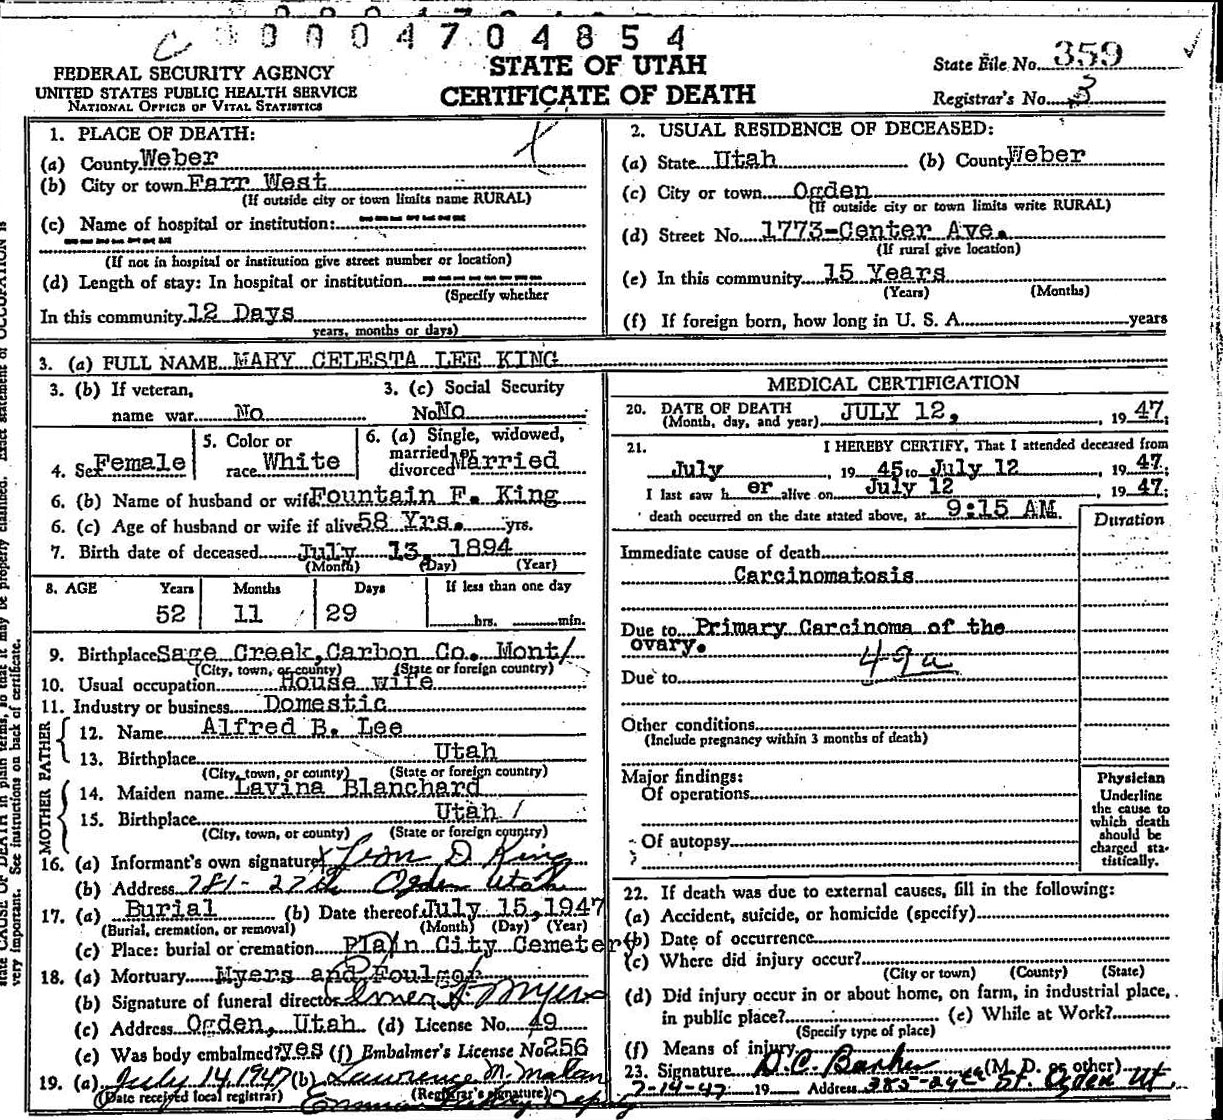 C 0004704854
FEDERAL SECURITY AGENCY
UNITED STATES PUBLIC HEALTH SERVICE
NATIONAL OFFICE OF VITAL STATISTICS
STATE OF UTAH
CERTIFICATE OF DEATH
State File No. 359
Registrar's No. 3
1. PLACE OF DEATH:
(a) County Weber
(b) City or town Farr West
(If outside city or town limits name RURAL)
(c) Name of hospital or institution: ------
------
(If not in hospital or institution give street number or location)
(d) Length of stay: In hospital or institution ------
(Specify whether
In this community 12 Days
years, months or days)
2. USUAL RESIDENCE OF DECEASED:
(a) State Utah (b) County Weber
(c) City or town Ogden
(If outside city or town limits write RURAL)
(d) Street No. 1773-Center Ave.
(If rural give location)
(e) In this community 15 Years
(Years) (Months)
(f) If foreign born, how long in U. S. A. years
3. (a) FULL NAME MARY CELESTA LEE KING
3. (b) If veteran,
name war No
3. (c) Social Security
No No
4. Sex Female
5. Color or
race White
6. (a) Single, widowed,
married or
divorced Married
6. (b) Name of husband or wife Fountain F. King
6. (c) Age of husband or wife if alive 58 Yrs. yrs.
7. Birth date of deceased July 13, 1894
(Month) (Day) (Year)
8. AGE Years Months Days If less than one day
52 11 29 hrs. min.
9. Birthplace Sage Creek, Carbon Co. Mont/
(City, town, or county) (State or foreign country)
10. Usual occupation House wife
11. Industry or business Domestic
FATHER
12. Name Alfred B. Lee
13. Birthplace Utah
(City, town, or county) (State or foreign country)
MOTHER
14. Maiden name Lavina Blanchard
15. Birthplace Utah /
(City, town, or county) (State or foreign country)
16. (a) Informant's own signature Leon D. King
(b) Address 781-27th Ogden Utah
17. (a) Burial (b) Date thereof July 15, 1947
(Burial, cremation, or removal) (Month) (Day) (Year)
(c) Place: burial or cremation Plain City Cemetery
18. (a) Mortuary Myers and Foulger
(b) Signature of funeral director Elmer A. Myers
(c) Address Ogden, Utah (d) License No. 49
(e) Was body embalmed? yes (f) Embalmer's License No. 256
19. (a) July 14, 1947 (b) Lawrence M. Malan
(Date received local registrar) (Registrar's signature)
Deputy
MEDICAL CERTIFICATION
20. DATE OF DEATH
(Month, day, and year) JULY 12, 1947;
21. I HEREBY CERTIFY, That I attended deceased from
July 19 45 to July 12, 19 47;
I last saw h er alive on July 12, 19 47;
death occurred on the date stated above, at 9:15 AM.
Duration
Immediate cause of death
Carcinomatosis
Due to Primary Carcinoma of the
ovary.
49a
Due to
Other conditions
(Include pregnancy within 3 months of death)
Major findings:
Of operations
Of autopsy
Physician
Underline
the cause to
which death
should be
charged sta-
tistically.
22. If death was due to external causes, fill in the following:
(a) Accident, suicide, or homicide (specify)
(b) Date of occurrence
(c) Where did injury occur?
(City or town) (County) (State)
(d) Did injury occur in or about home, on farm, in industrial place,
in public place? (e) While at Work?
(Specify type of place)
(f) Means of injury
23. Signature D. C. Barker (M. D. or other)
7-14-47 19 Address 385-24th St. Ogden Ut.
state CAUSE OF DEATH in plain terms, so that it may be properly classified. Exact statement of OCCUPATION is
very important. See instructions on back of certificate.